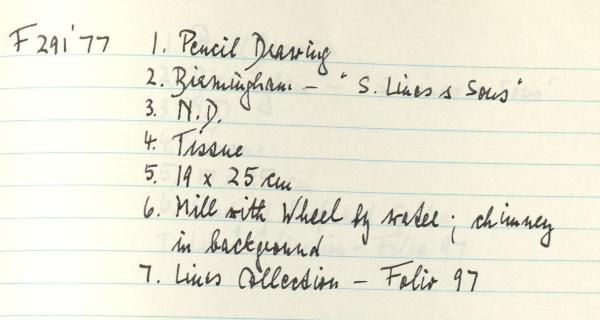 F 291'77 1. Pencil Drawing
2. Birmingham - "S. Lines & Sons"
3. N.D.
4. Tissue
5. 19 x 25 cm
6. Mill with Wheel by water; chimney
in background
7. Lines Collection - Folio 97